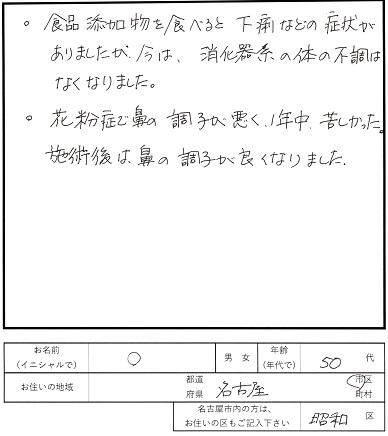 ○ 食品添加物を食べると下痢などの症状が
ありましたが、今は、消化器系の体の不調は
なくなりました。
○ 花粉症で鼻の調子が悪く、1年中、苦しかった。
施術後は鼻の調子が良くなりました。
お名前
(イニシャルで)
○
男 女
年齢
(年代で)
50 代
お住いの地域
都道
府県
名古屋
市区
町村
名古屋市内の方は、
お住いの区もご記入下さい
昭和 区